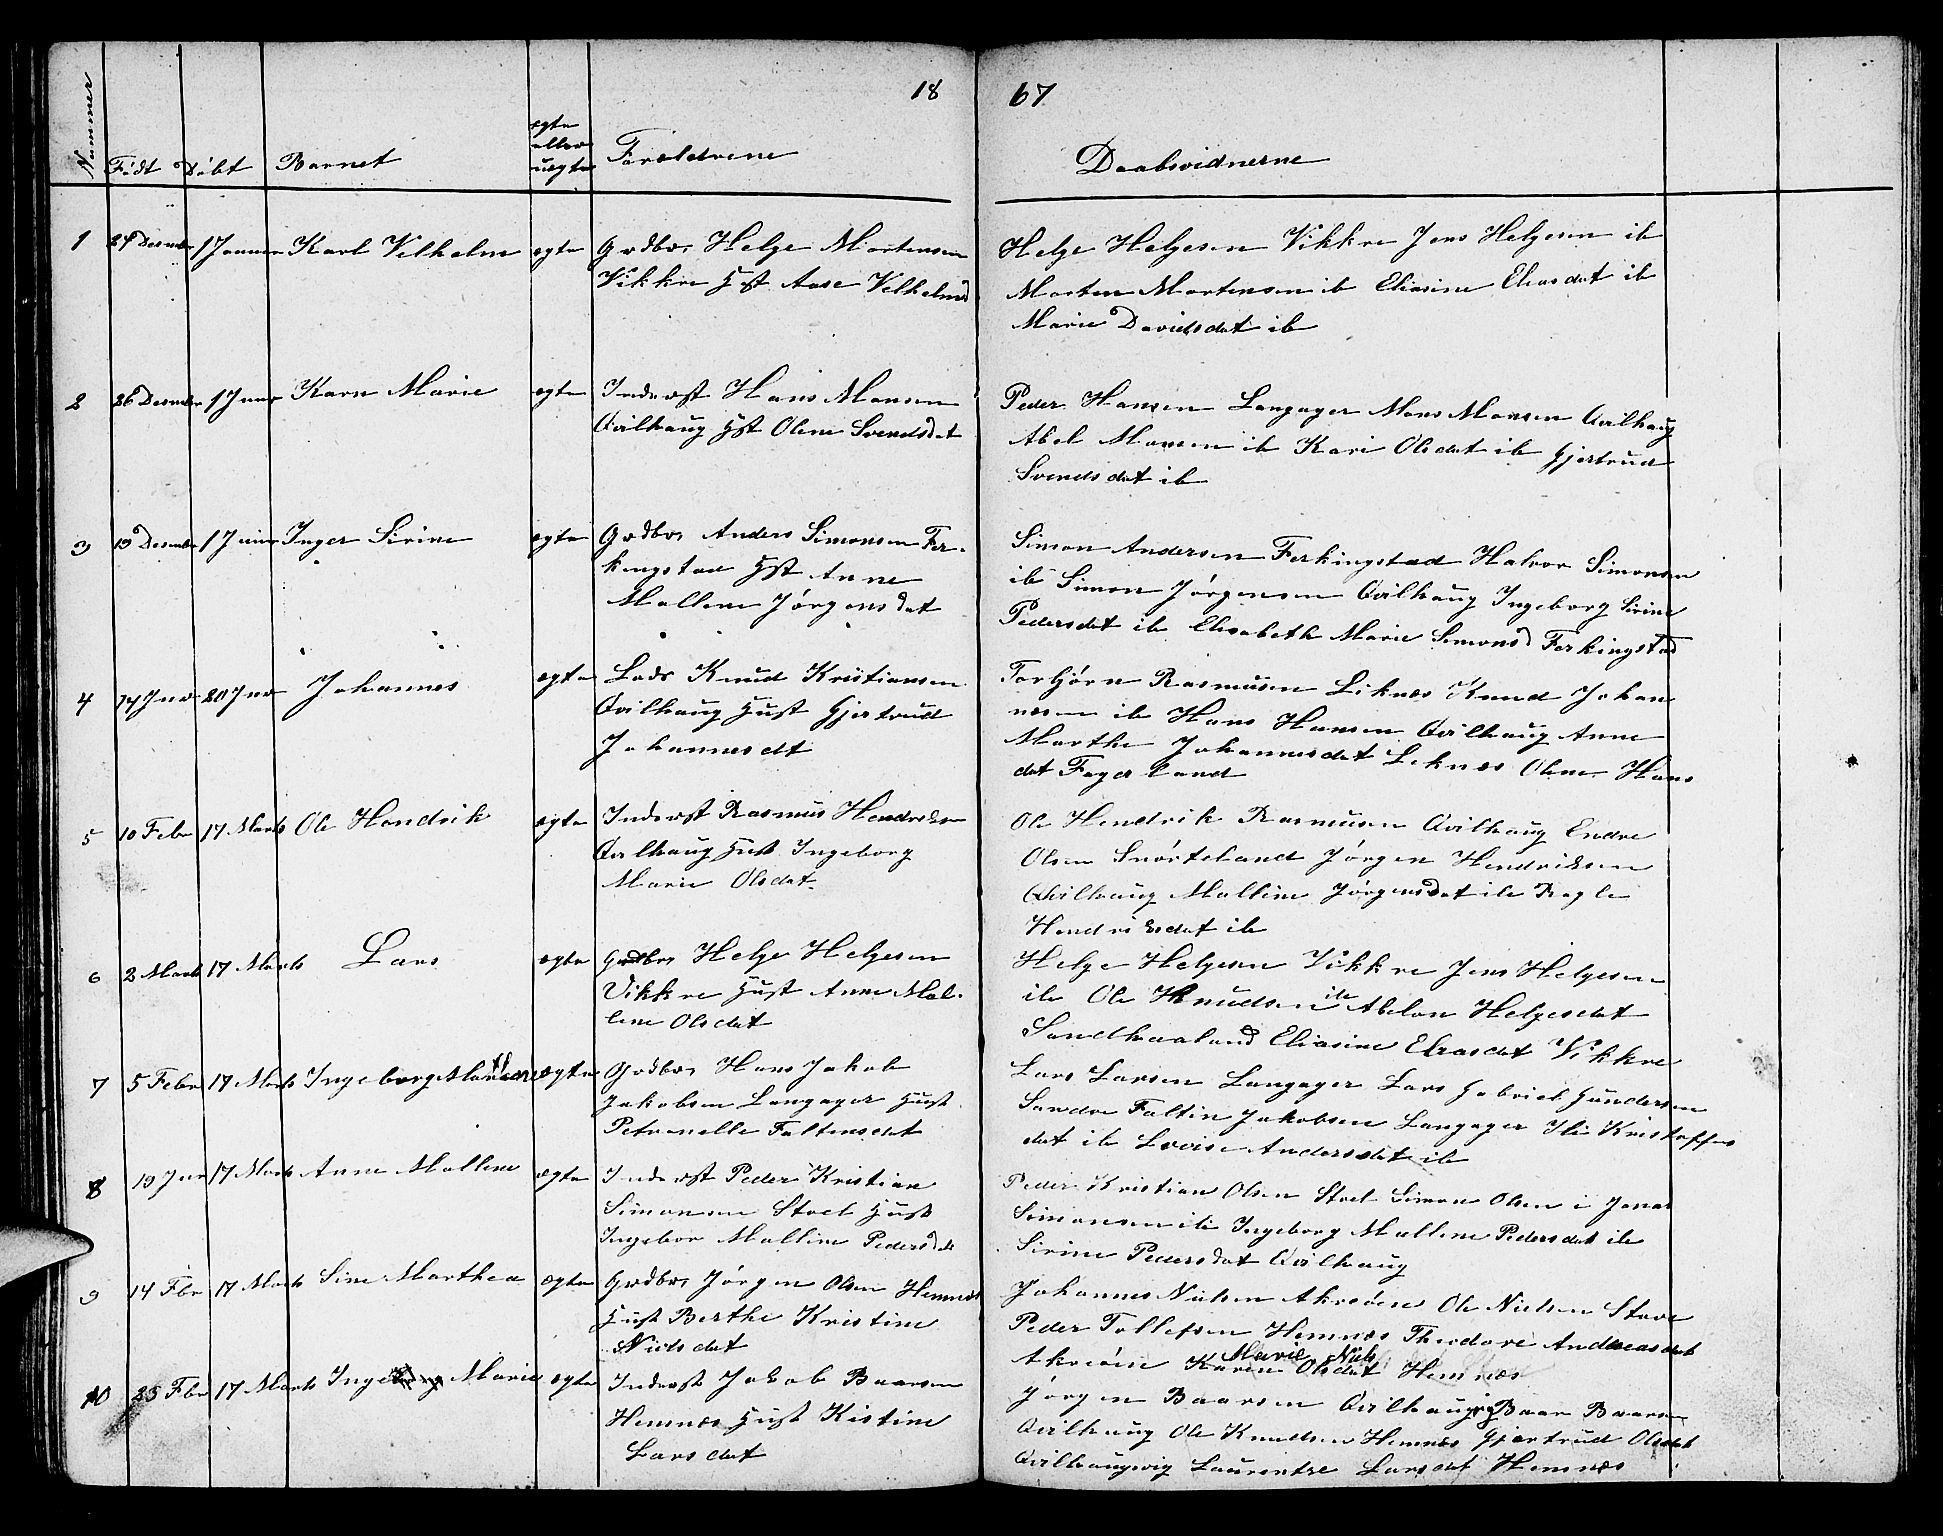 18 67
Nummer Födt Döbt Barnet egte eller uegte Forældrene Daabsvidnerne
1 24 Desember 1 Januar Karl Velhelm egte Grdbr Helge Mortensen
Vikkre Hst Aase Velhelmsd
Helge Helgesen Vikkre Jens Helgesen ib
Morten Mortensen ib Eliasine Eliasdat ib
Marie Davidsdat ib
2 26 Desember 1 Januar Karn Marie egte Inderst Hans Monsen
Qvilhaug Hst Olene Svendsdat
Peder Hansen Langager Mons Monsen Qvilhaug
Abel Monsen ib Kari Olsdat ib Gjertrud
Svendsdat ib
3 13 Desember 1 Januar Inger Sirine egte Grdbr Anders Simonsen Fer-
kingstad Hst Anne
Mallene Jörgensdat
Simon Andersen Ferkingstad Halvor Simonsen
ib Simon Jörgensen Qvilhaug Ingeborg Sirine
Pedersdat ib Elisabeth Marie Simonsd Ferkingstad
4 14 Jnr 20 Jnr Johannes egte Lods Knud Kristiansen
Qvilhaug Hust Gjertrud
Johannesdt
Torbjörn Rasmusen Liknes Knud Johan
nesen ib Hans Hansen Qvilhaug Anne
Marthe Johannesdat Leknes Olene Hans
dat Fagerland
5 10 Febr 17 Marts Ole Hendrik egte Inderst Rasmus Hendriksen
Qvilhaug Hust Ingeborg
Marie Olsdat
Ole Hendrik Rasmusen Qvilhaug Endre
Olsen Snörteland Jörgen Hendriksen
Qvilhaug Mallene Jörgensdat ib Ragle
Hendriksdat ib
6 2 Marts 17 Marts Lars egte Grdbr Helge Helgesen
Vikkre Hust Anne Mal-
lene Olsdat
Helge Helgesen Vikkre Jens Helgesen
ib Ole Knudsen ib Abelon Helgesdat
Sandhaaland Eliasine Eliasdat Vikkre
7 5 Febr 17 Marts Ingeborg egte Grdbr Hans Jakob
Jakobsen Langager Hust
Petronelle Faltinsdat
Lars Larsen Langager Lars Gabriel Gundersen
Sandve Faltin Jakobsen Langager Ili Kristoffers
dat ib Lovise Andersdat ib
8 19 Jnr 17 Marts Anne Mallene egte Inderst Peder Kristian
Simonsen Stoel Hust
Ingebor Mallene Pedersdt
Peder Kristian Olsen Stoel Simon Olsen i Jonas
Simonsen ib Ingeborg Mallene Pedersdat ib
Sirine Pedersdat Qvilhaug
9 14 Fbr 17 Marts Sine Marthea egte Grdbr Jörgen Olsen Hemnes
Hust Berthe Kristine
Nielsdat
Johannes Nielsen Akreöen Ole Nielsen Stave
Peder Tollefsen Hemnes Theodore Andreasdat
Akreöen Karen Marie Niels Olsdat Hemnes
10 25 Fbr 17 Marts Inge Marie egte Inderst Jakob Baarsen
Hemnes Hust Kistine
Larsdat
Jörgen Baarsen Qvilhaugvig Baar Baarsen
Qvilhaug Ole Knudsen Hemnes Gjertrud Olsdat
Qvilhaugvig Laurentse Larsdat Hemnes